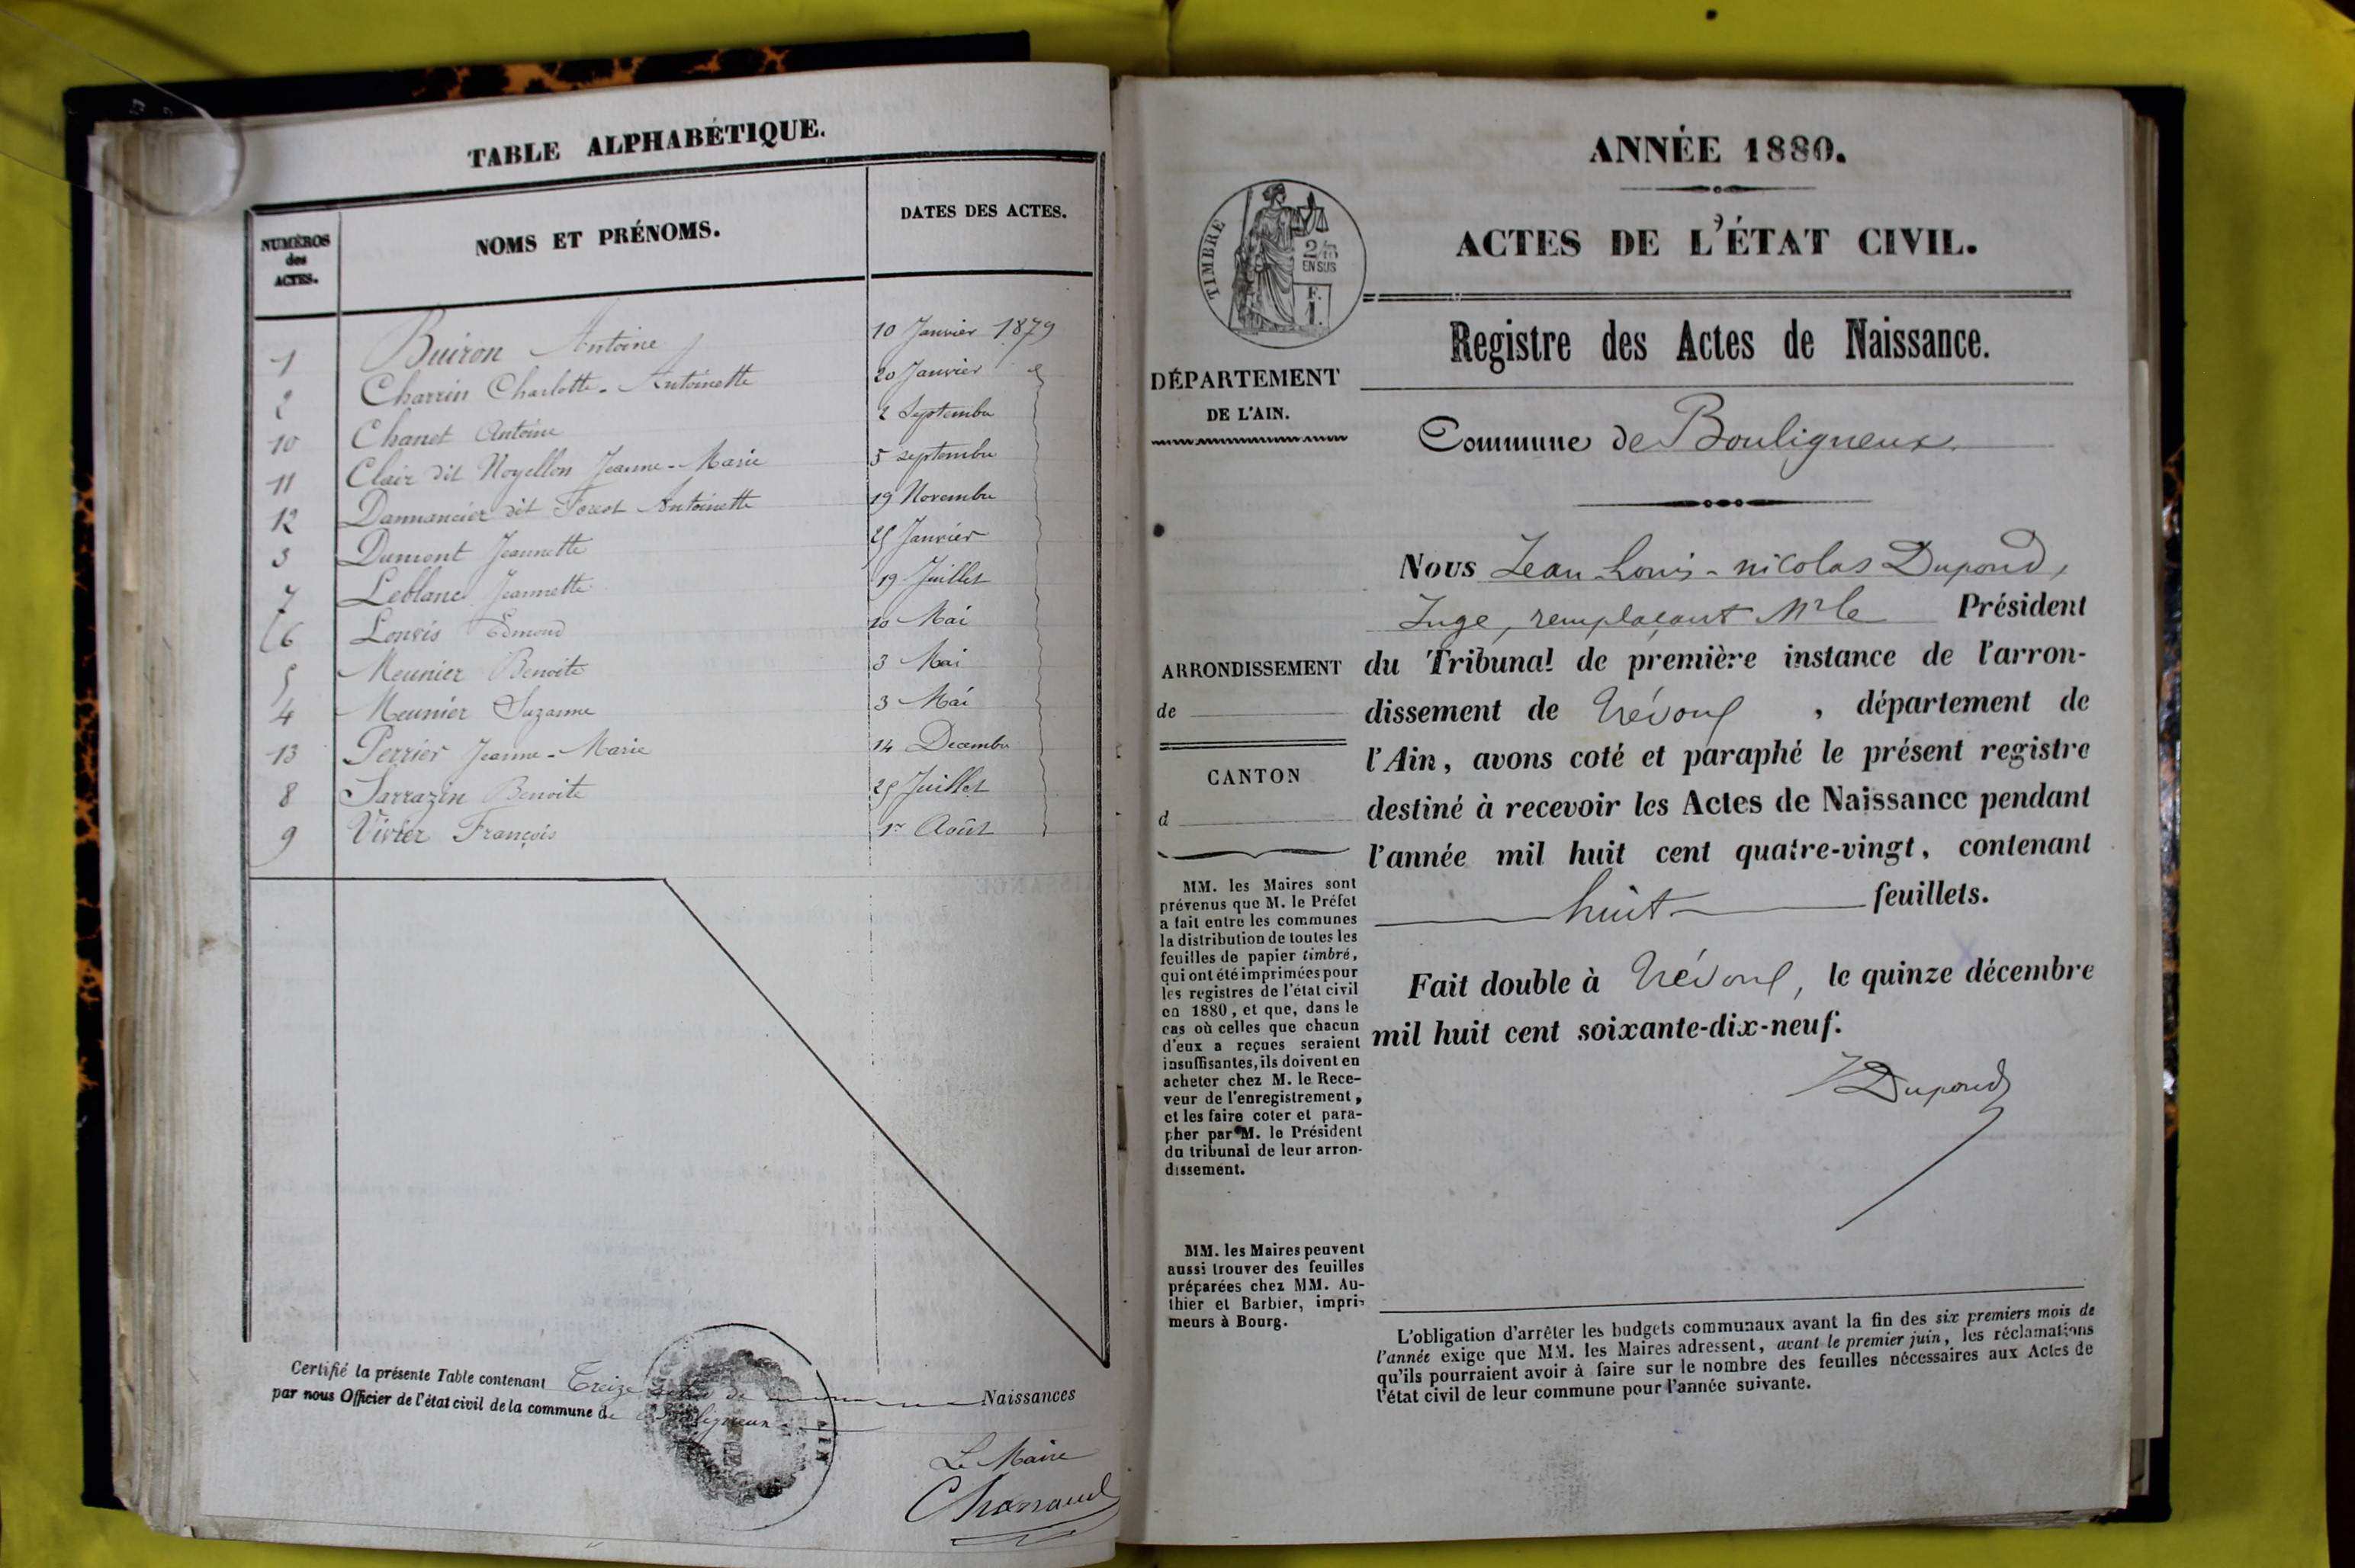 TABLE ALPHABÉTIQUE.
NUMÉROS des ACTES. NOMS ET PRÉNOMS. DATES DES ACTES.
1 Buiron Antoine 10 Janvier 1879
2 Charrin Charlotte-Antoinette 20 Janvier
10 Chanet Antoine 2 Septembre
11 Clair dit Noyellon Jeanne-Marie 5 septembre
12 Dannancier dit Forest Antoinette 19 Novembre
3 Dumont Jeannette 25 Janvier
7 Leblanc Jeannette 19 Juillet
6 Edmond 10 Mai
5 Meunier Benoite 3 Mai
4 Meunier Suzanne 3 Mai
13 Perrier Jeanne-Marie 14 Decembre
8 Sarrazin Benoite 25 Juillet
9 Vivier François 1er Août
Certifié la présente Table contenant Treize actes de Naissances
par nous Officier de l'état civil de la commune de Bouligneux
AIN
Le Maire
ANNÉE 1880.
ACTES DE L'ÉTAT CIVIL.
TIMBRE
2/10
EN SUS
F.
1.
Registre des Actes de Naissance.
DÉPARTEMENT
DE L'AIN.
Commune de Bouligneux.
Nous Jean Louis-nicolas Dupond,
Juge, remplaçant Mr le Président
du Tribunal de première instance de l'arron-
dissement de Trévoux, département de
l'Ain, avons coté et paraphé le présent registre
destiné à recevoir les Actes de Naissance pendant
l'année mil huit cent quatre-vingt, contenant
huit feuillets.
Fait double à Trévoux, le quinze décembre
mil huit cent soixante-dix-neuf.
Dupond
ARRONDISSEMENT
de
CANTON
d
MM. les Maires sont
prévenus que M. le Préfet
a fait entre les communes
la distribution de toutes les
feuilles de papier timbré,
qui ont été imprimées pour
les registres de l'état civil
en 1880, et que, dans le
cas où celles que chacun
d'eux a reçues seraient
insuffisantes, ils doivent en
acheter chez M. le Rece-
veur de l'enregistrement,
et les faire coter et para-
pher par M. le Président
du tribunal de leur arron-
dissement.
MM. les Maires peuvent
aussi trouver des feuilles
préparées chez MM. Au-
thier et Barbier, impri-
meurs à Bourg.
L'obligation d'arrêter les budgets communaux avant la fin des six premiers mois de
l'année exige que MM. les Maires adressent, avant le premier juin, les réclamations
qu'ils pourraient avoir à faire sur le nombre des feuilles nécessaires aux Actes de
l'état civil de leur commune pour l'année suivante.